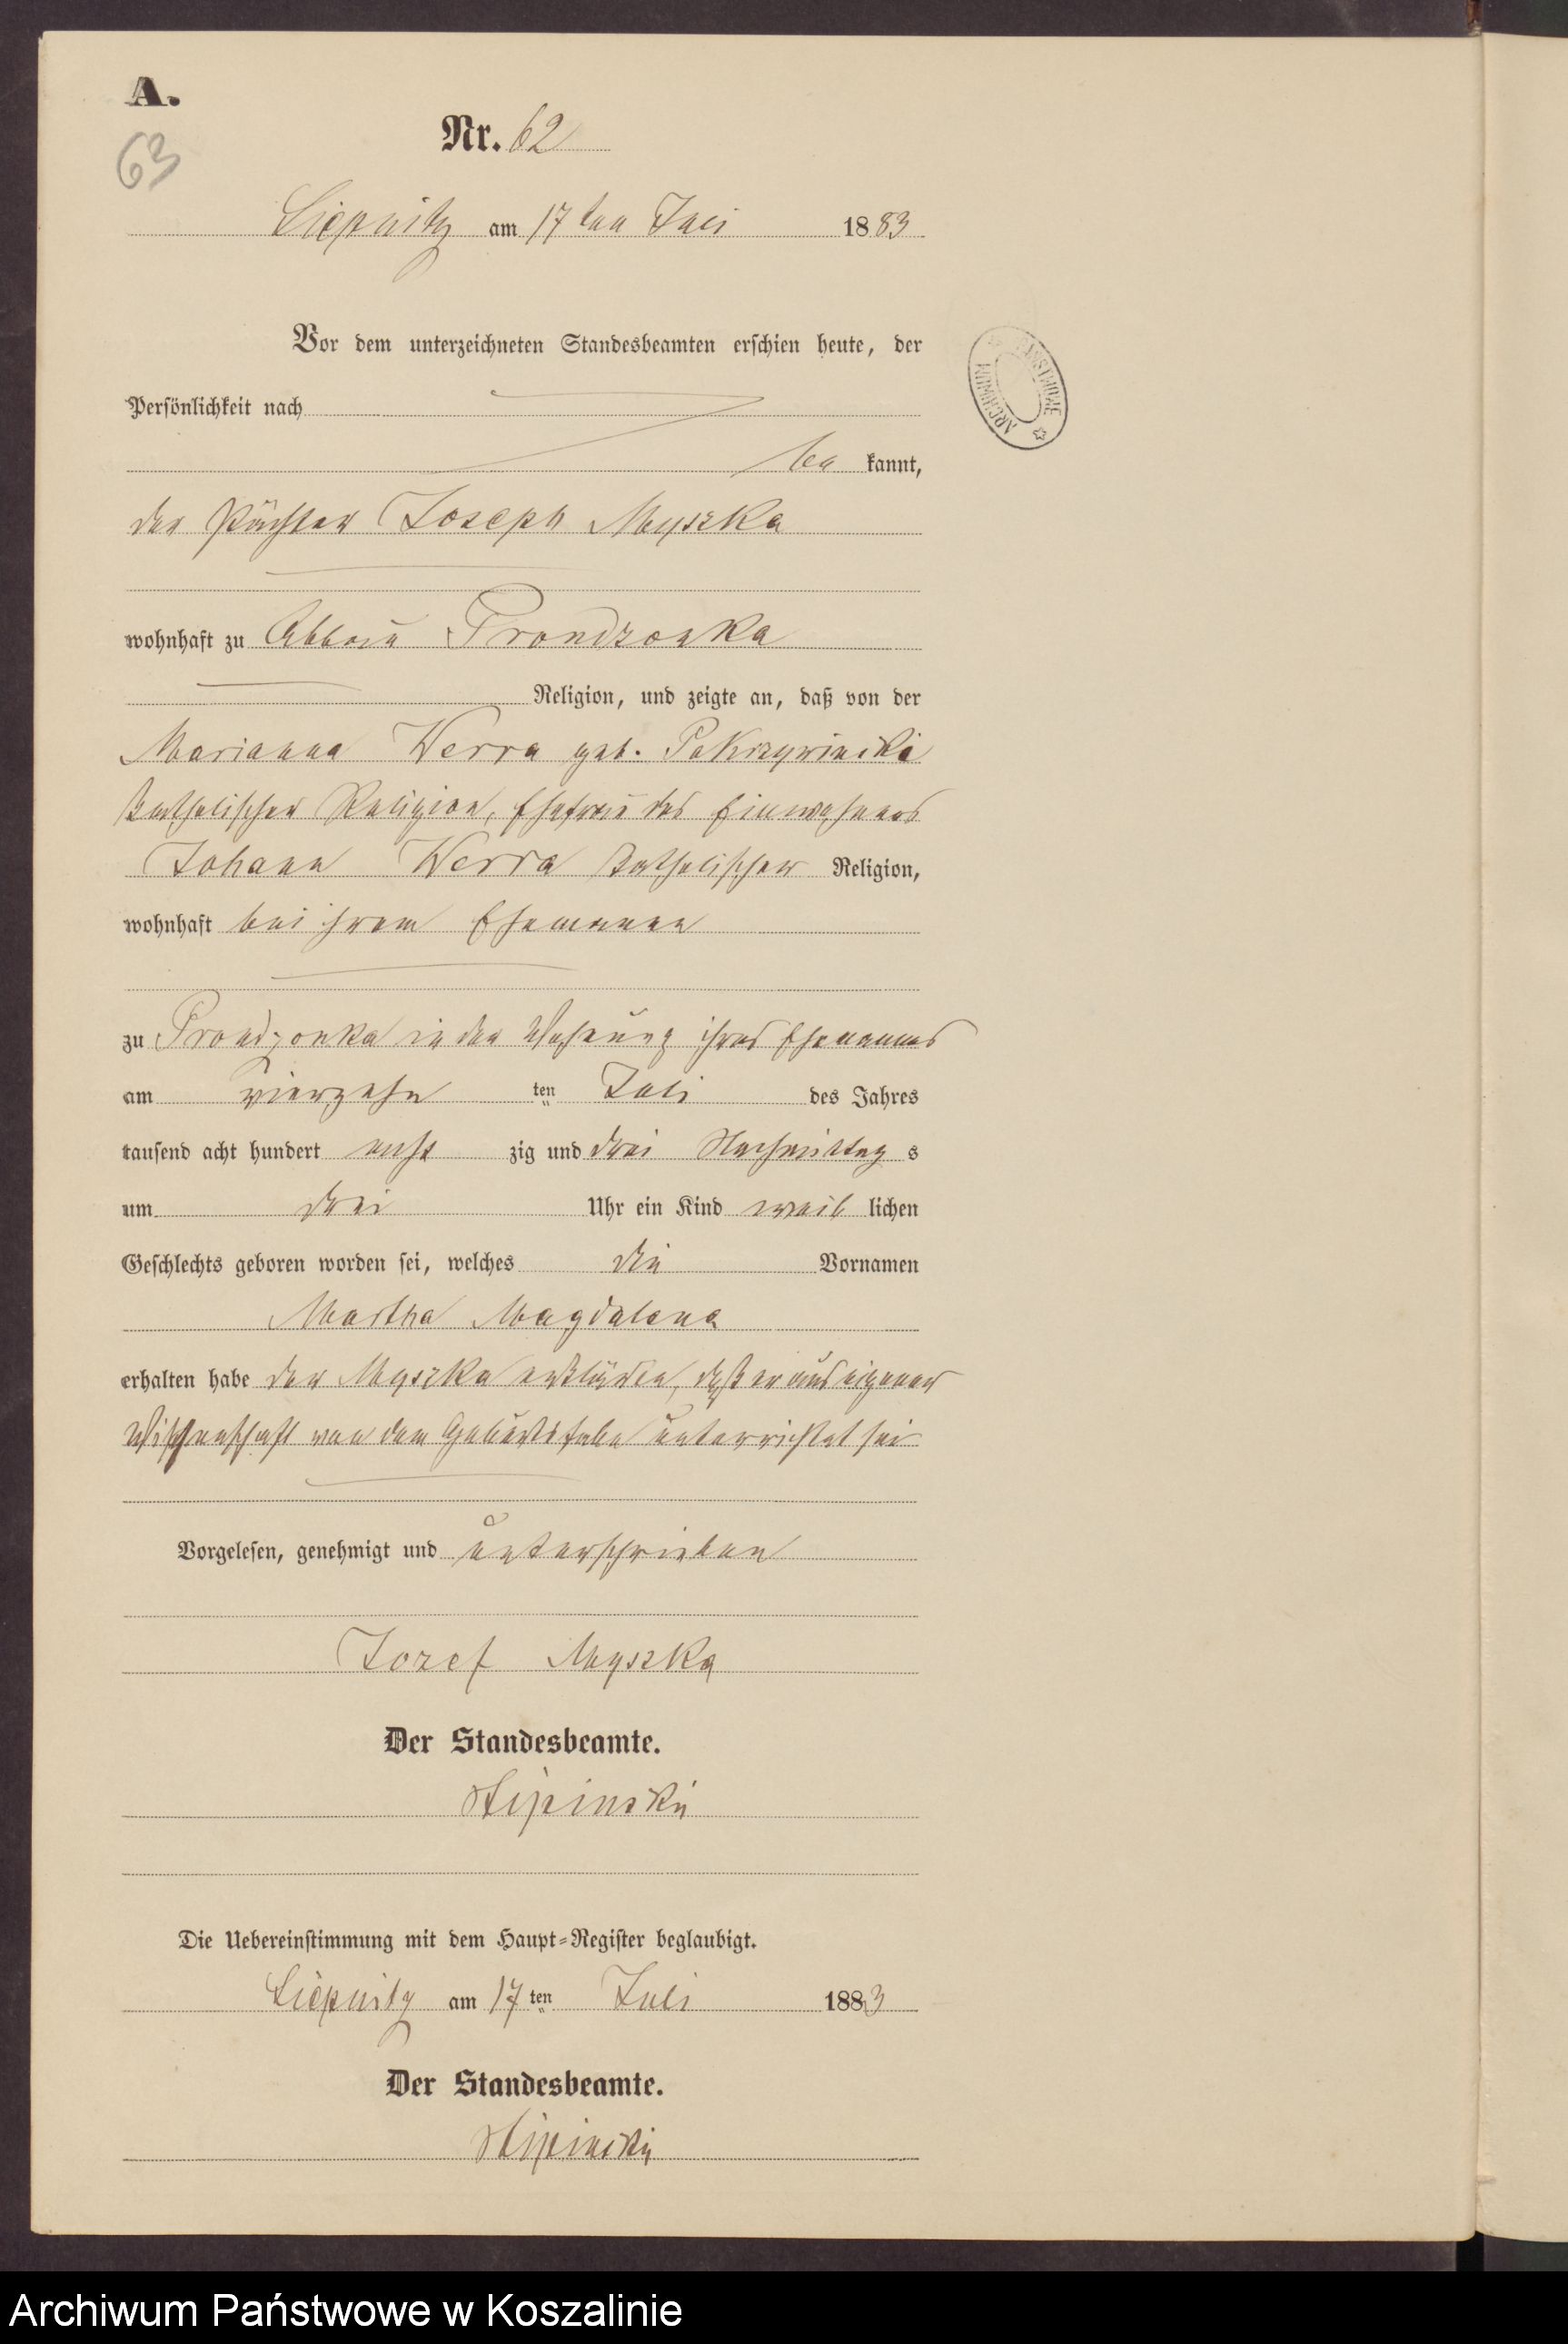 A.
63
Nr. 62
Liepnitz am 17ten Juli 1883
Vor dem unterzeichneten Standesbeamten erschien heute, der
Persönlichkeit nach
be kannt,
der Pächter Joseph Myszka
wohnhaft zu Abbau Prondzonka
Religion, und zeigte an, daß von der
Marianna Werra geb.
katholischer Religion, Ehefrau des Einwohners
Johann Werra katholischer Religion,
wohnhaft bei ihrem Ehemanne
zu Prondzonka in der Wohnung ihres Ehemannes
am vierzehn ten Juli des Jahres
tausend acht hundert acht zig und drei Nachmittag s
um drei Uhr ein Kind weib lichen
Geschlechts geboren worden sei, welches die Vornamen
Martha Magdalena
erhalten habe der Myszka erklärte, daß er aus eigener
Wissenschaft von dem Geburtsfalle unterrichtet sei
Vorgelesen, genehmigt und unterschrieben
Jozef Myszka
Der Standesbeamte.
Die Uebereinstimmung mit dem Haupt-Register beglaubigt.
Liepnitz am 17ten Juli 1883
Der Standesbeamte.
Archiwum Państwowe w Koszalinie